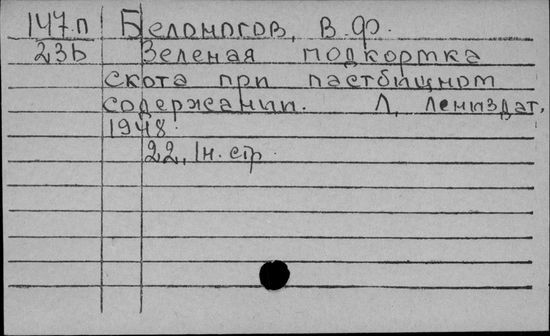 147.п Белоногов, В.Ф.
23b Зеленая подкормка
скота при пастбищном
содержании. Л, Лениздат,
1948.
22, 1н. стр.